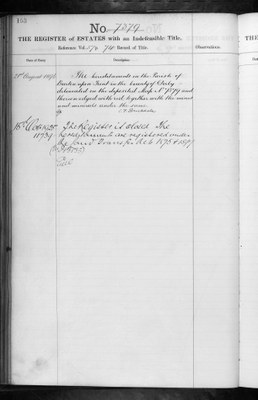 153
No. 7379
THE REGISTER of ESTATES with an Indefensible Title.
Reference Vol. Record of Title.
Observations
Date of Entry.
Description.
August The hereditaments in the Parish of
upon Trent in the County of Derby
delineated on the deposited Map No. 7379 and
thereon edged with red together with the mines
and minerals under the same
The Register is closed. The
hereditaments are registered under
the Land Transfer Acts 1875 & 1897